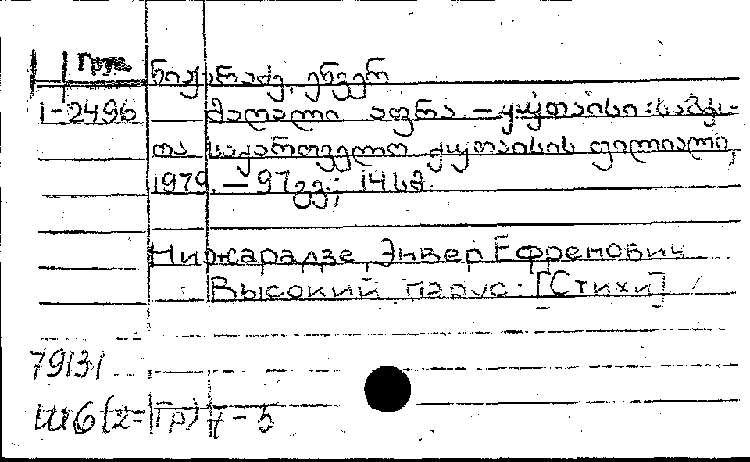 Груз.
ნიჟარაძე, ენვერ
1-2496 მაღალი აფრა. — ქუთაისი: საბჭო-
თა საქართველო ქუთაისის ფილიალი,
1979. — 97 გვ.; 14 სმ.
Нижарадзе, Энвер Ефремович
Высокий парус. [Стихи]
79131
Ш6(2=Гр)7-5